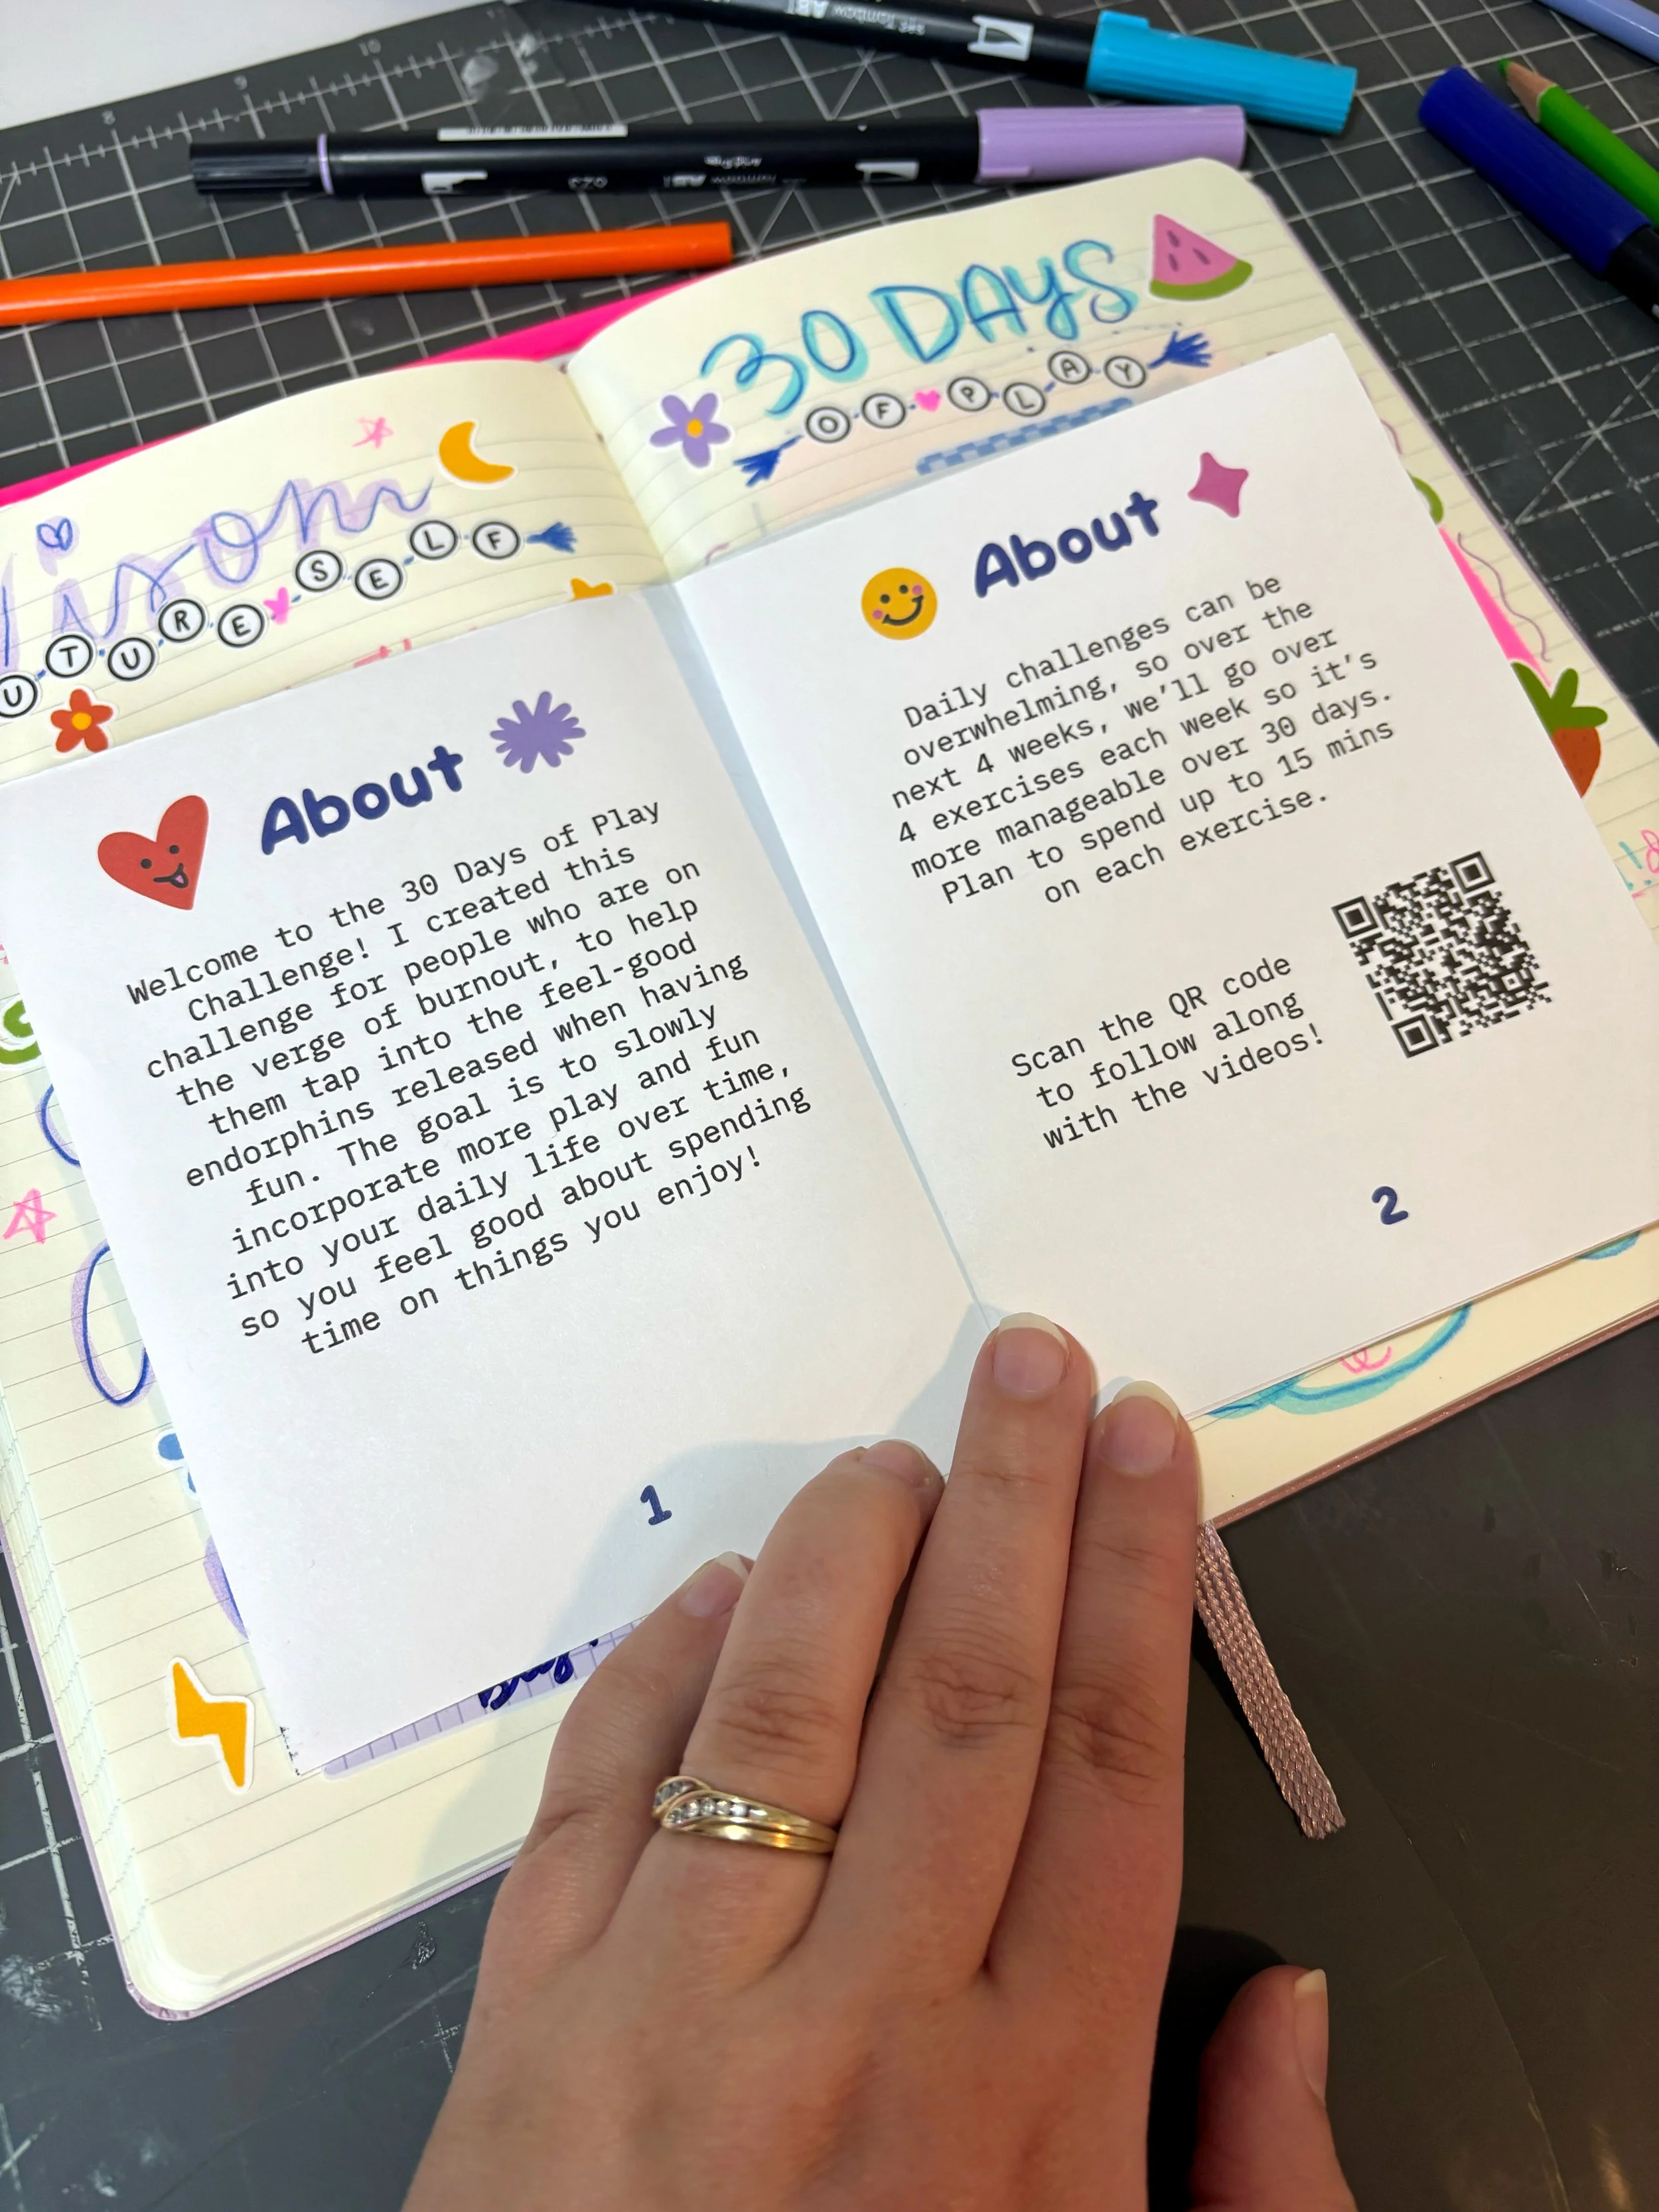 8
9
10
11
30 DAYS
OF PLAY
UTURE SELF
About
Welcome to the 30 Days of Play
Challenge! I created this
challenge for people who are on
the verge of burnout, to help
them tap into the feel-good
endorphins released when having
fun. The goal is to slowly
incorporate more play and fun
into your daily life over time,
so you feel good about spending
time on things you enjoy!
1
About
Daily challenges can be
overwhelming, so over the
next 4 weeks, we'll go over
4 exercises each week so it's
more manageable over 30 days.
Plan to spend up to 15 mins
on each exercise.
Scan the QR code
to follow along
with the videos!
2